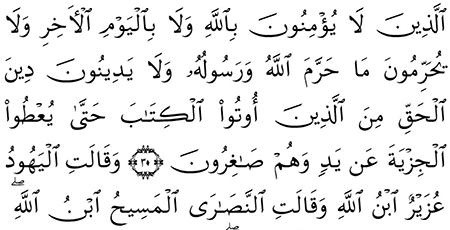 الَّذِينَ لَا يُؤْمِنُونَ بِاللَّهِ وَلَا بِالْيَوْمِ الْأَخِرِ وَلَا
يُحَرِّمُونَ مَا حَرَّمَ اللَّهُ وَرَسُولُهُ وَلَا يَدِينُونَ دِينَ
الْحَقِّ مِنَ الَّذِينَ أُوتُوا۟ الْكِتَٰبَ حَتَّىٰ يُعْطُوا۟
الْجِزْيَةَ عَن يَدٍ وَهُمْ صَٰغِرُونَ ﴿٣٥﴾ وَقَالَتِ الْيَهُودُ
عُزَيْرٌ ابْنُ اللَّهِ وَقَالَتِ النَّصَٰرَى الْمَسِيحُ ابْنُ اللَّهِ ۖ